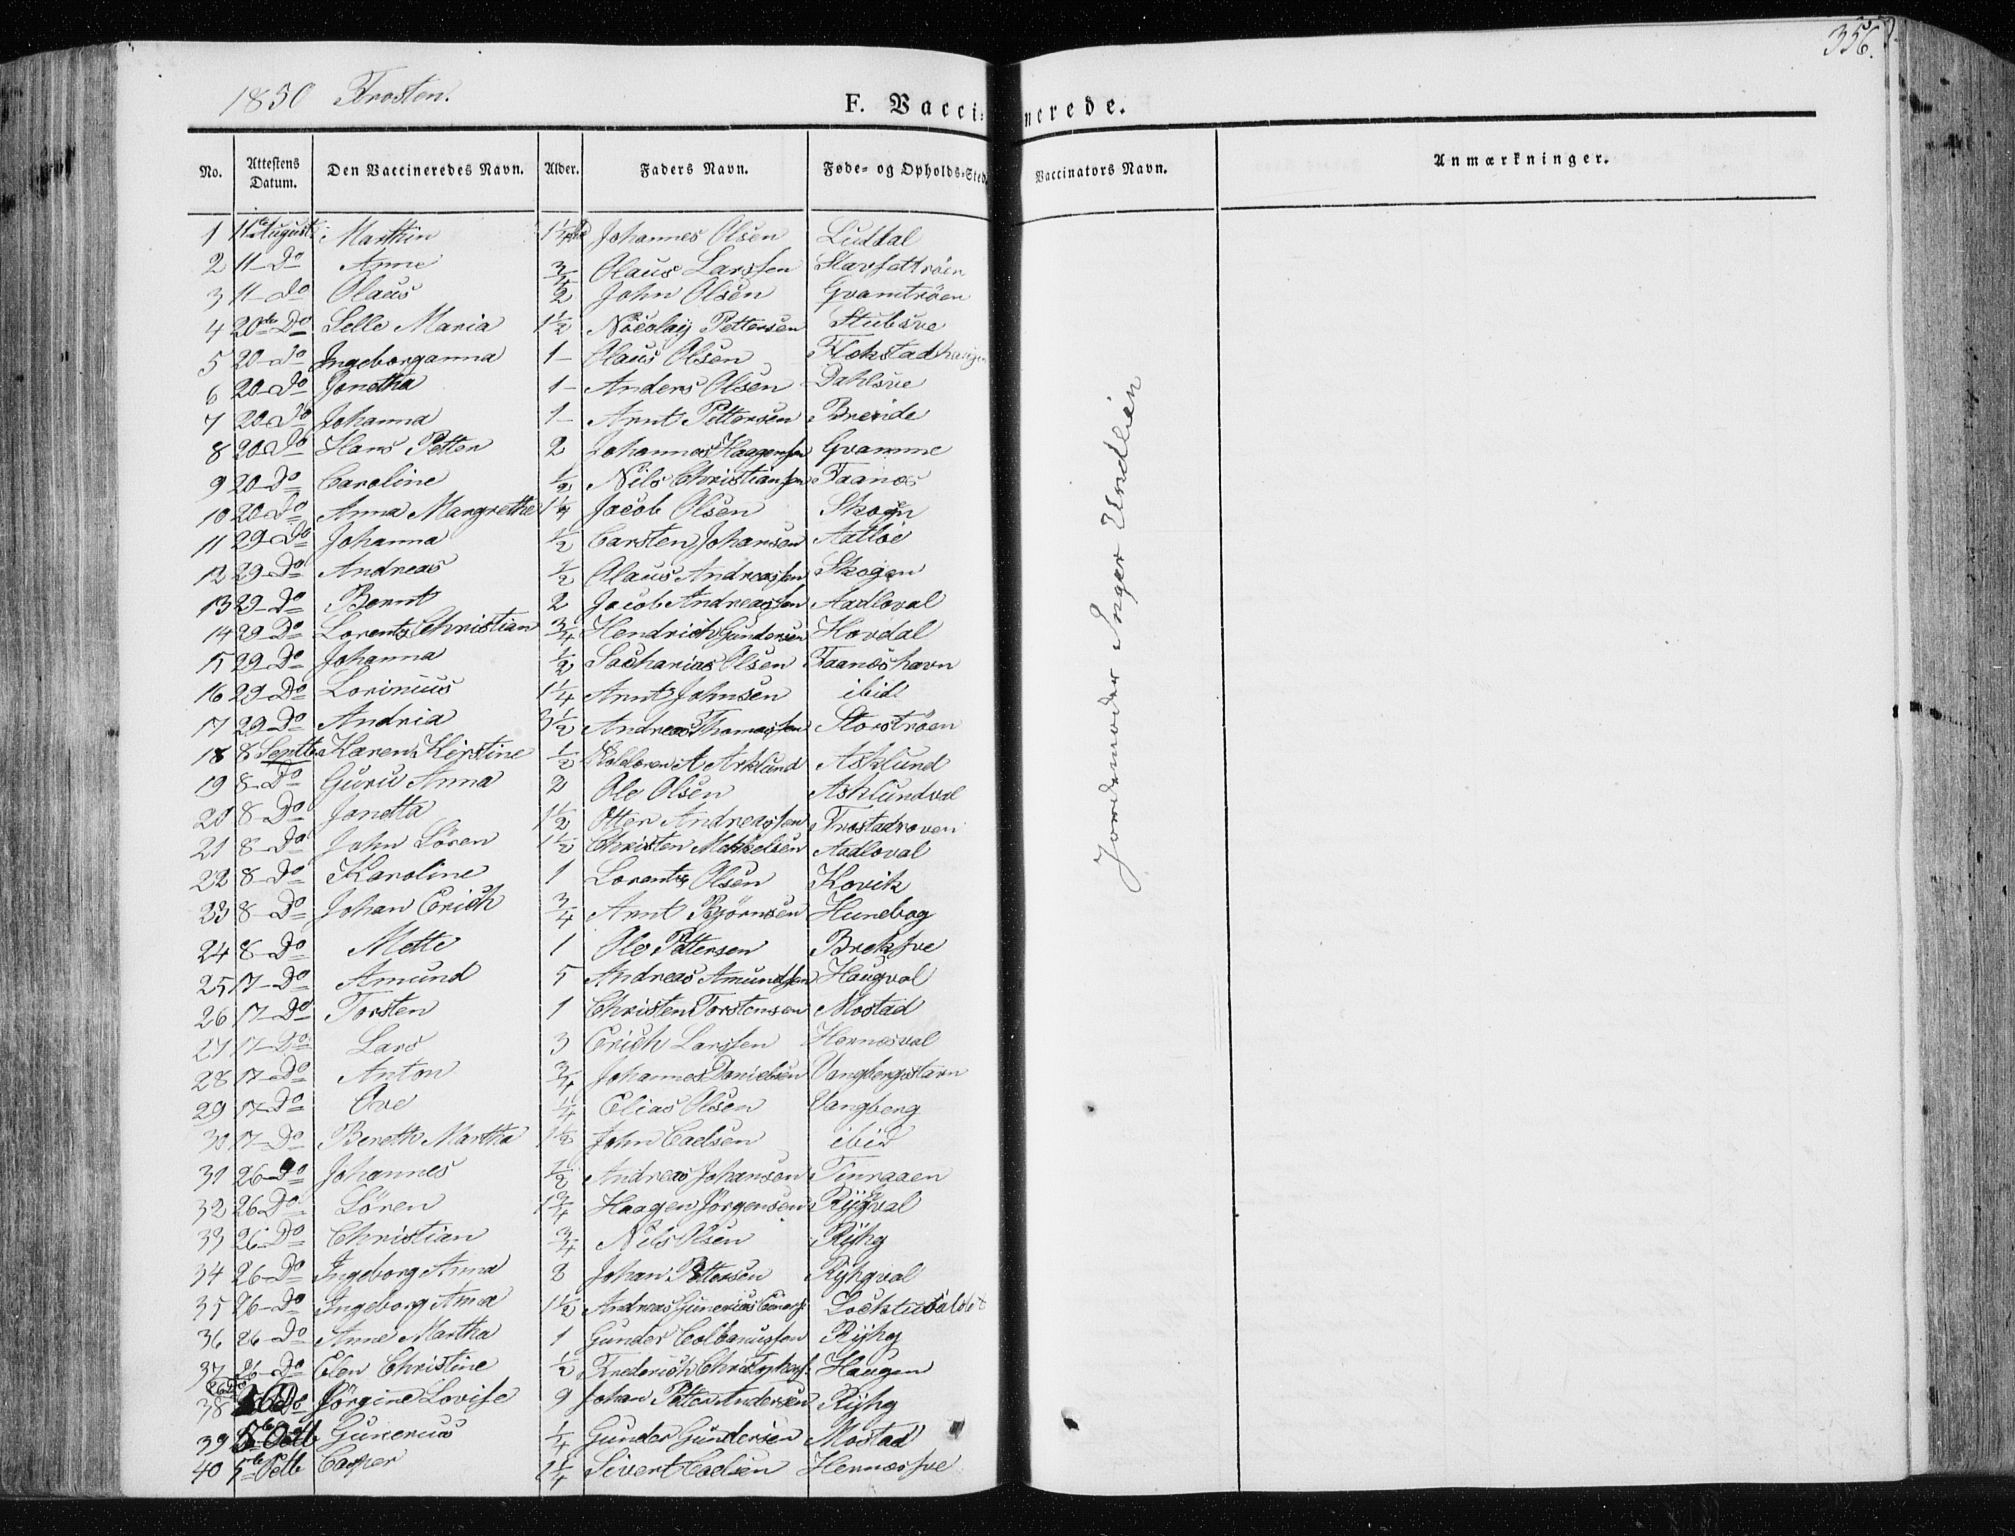 356.
1850 Frosten.
F. Vaccinerede.
No. Attestens Datum. Den Vaccineredes Navn. Alder. Faders Navn. Føde- og Opholds-Sted. Vaccinators Navn. Anmærkninger.
1 11te August Marthin 1 1/4 Johannes Olsen Luddal
2 11 Do Anne 3/4 Olaus Larssen
3 11 Do Olaus 1/2 John Olsen Gvamtröen
4 20de Do Lelle Maria 1 1/2 Nicolay Pettersen Stubsve
5 20 Do Ingeborganna 1 Olaus Olsen
6 20 Do Jonetha 1 Anders Olsen Dahlsve
7 20 Do Johanna 1 Arnt Pettersen Breride
8 20 Do Hans Petter 2 Johannes Haagensen Gvamme
9 20 Do Caroline 1/2 Nils Christiansen Faanes
10 20 Do Anna Margrethe 1 1/4 Jacob Olsen Skogn
11 29 Do Johanna 1/2 Carsten Johansen Aatlöe
12 29 Do Andreas 1/2 Olaus Andreassen Skogen
13 29 Do Bernt 2 Jacob Andreassen Aadloval
14 29 Do Lorents Christian 3/4 Hendrich Gundersen Hovdal
15 29 Do Johanna 1/2 Sacharias Olsen Faaneshavn
16 29 Do Lorinius 1 1/4 Arnt Johnsen ibid
17 29 Do Andria 3 1/2 Andreas Thomassen Storströen
18 8 Septb Karen Kirstine 1/2 A Asklund Asklund
19 8 Do Guru Anna 2 Ole Olsen Asklundval
20 8 Do Jonetta 1 1/2 Otter Andreassen
21 8 Do John Sören 1 1/2 Christen Mekkelsen Aadloval
22 8 Do Karoline 1 Lorents Olsen Kovik
23 8 Do Johan Erich 3/4 Arnt Björnsen Hunebog
24 8 Do Mette 1 Ole Pettersen Breksve
25 17 Do Amund 5 Andreas Amundsen Haugval
26 17 Do Torsten 1 Christen Torstensen Mostad
27 17 Do Lars 3 Erich Larssen Hernesval
28 17 Do Anton 3/4 Johannes Danielsen
29 17 Do Ove 1/4 Elias Olsen Vangberg
30 17 Do Bereth Martha 1 1/2 John Carlsen ibid
31 26 Do Johannes 1/2 Andreas Johansen Tinraaen
32 26 Do Sören 1 3/4 Haagen Jörgensen Rÿgval
33 26 Do Christian 3/4 Nils Olsen Rÿhg
34 26 Do Ingeborg Anna 8 Johan Pettersen Rÿhgval
35 26 Do Ingeborg Anna 1 1/2 Andreas Gunerius
36 26 Do Anne Martha 1 Gunder Colbanussen Rÿhg
37 26 Do Elen Christine 1/2 Frederich Haugen
38 26 Do Jörgine Lovise 9 Johan Petter Andersen Rÿhg
39 5te Octb Gunerius 1/4 Gunder Gundersen Mostad
40 5te Octb Casper 1 1/4 Sivert Carlsen Hernessve
Jordemoder Inger Undlien